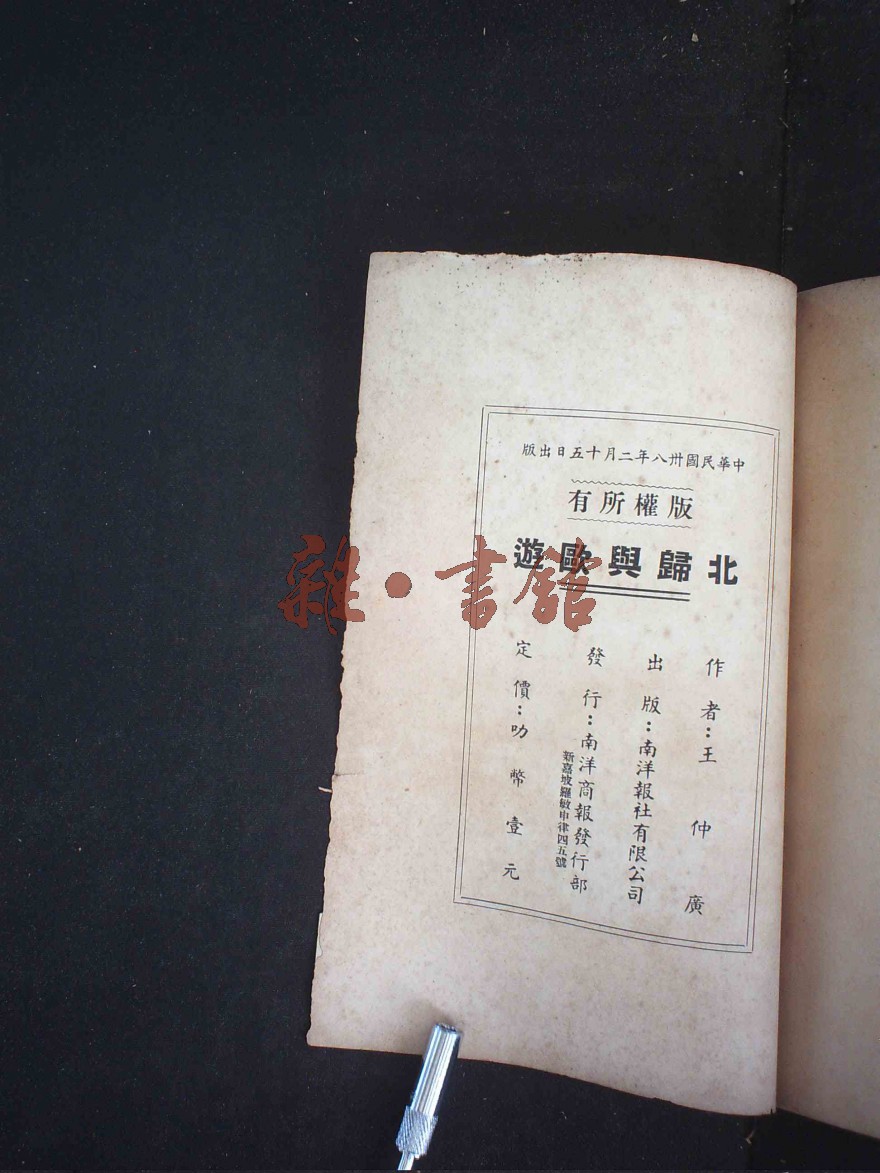 中華民國卅八年二月十五日出版
版權所有
北歸與歐遊
作者：王仲廣
出版：南洋報社有限公司
發行：南洋商報發行部
新嘉坡羅敏申律四五號
定價：叻幣壹元
雜·書館